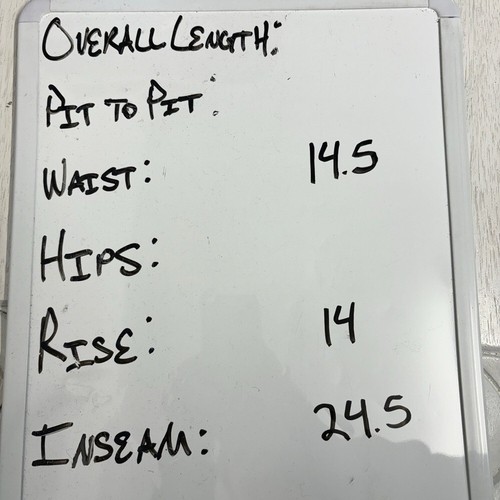 OVERALL LENGTH:
PIT TO PIT:
WAIST: 14.5
HIPS:
RISE: 14
INSEAM: 24.5